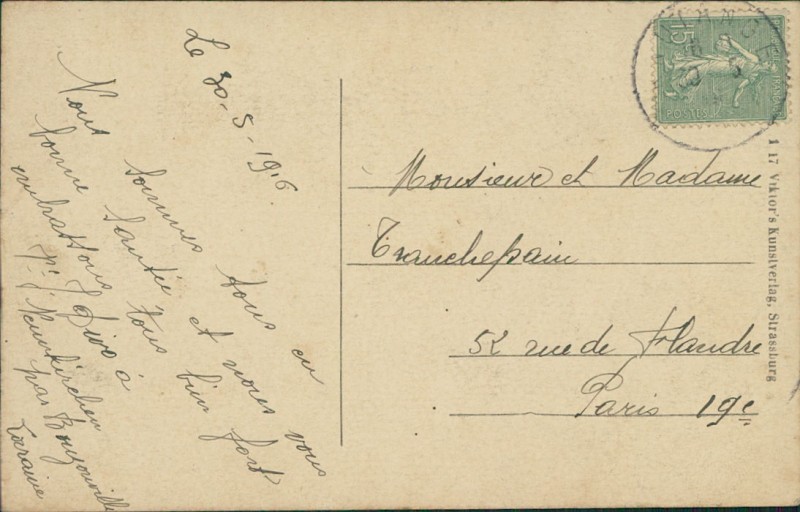 Le 30-5-1916.
Nous sommes tous en
bonne santée et nous vous
embrassons tous bien fort
à
Neunkirchen
par Bouzonville
Lorraine
Monsieur et Madame
Tranchepain
52 rue de Flandre
Paris 19e
15c
1 17 Viktor's Kunstverlag, Strassburg